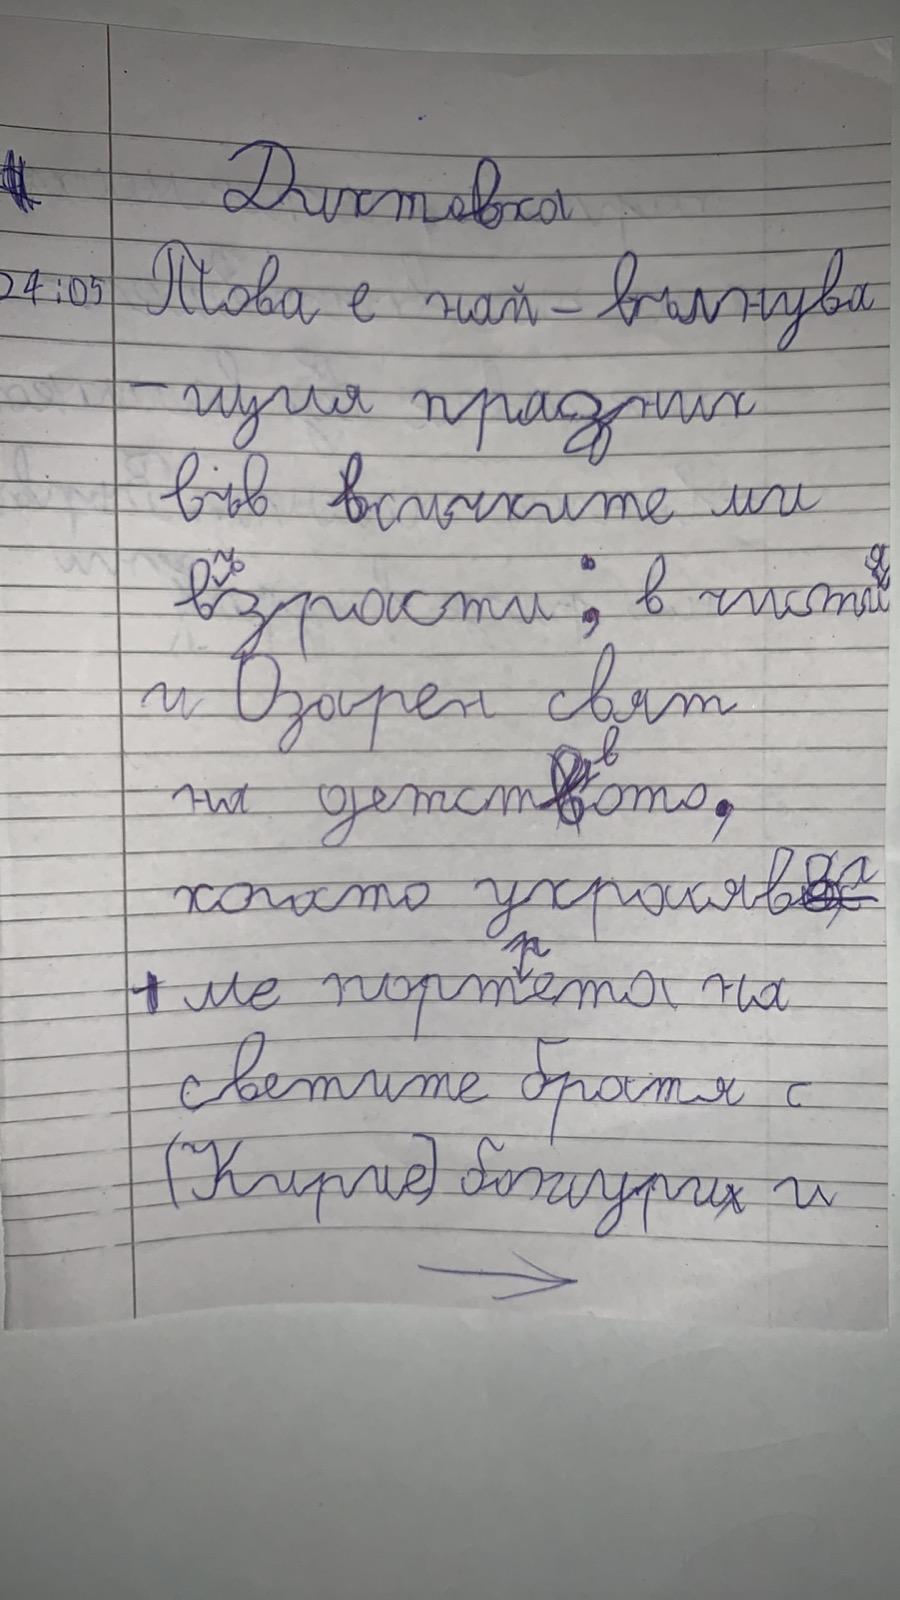 Диктовка
24:05 Това е най-вълнува
-щия празник
във всичките ми
възрасти; в чистия
и Озарен свят
на детството,
когато украсява
+ ме портрета на
светите братя с
(Кирие) божурих и